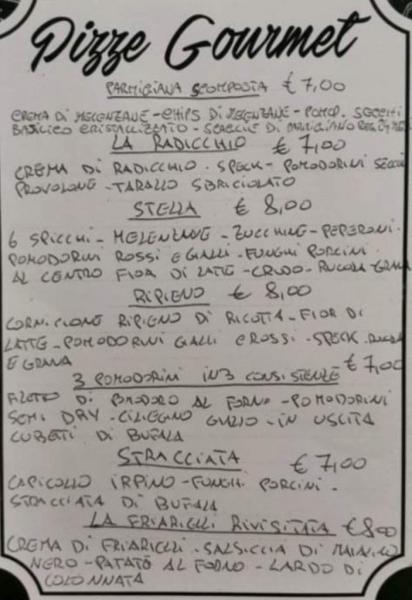 Pizze Gourmet
PARMIGIANA SCOMPOSTA € 7,00
CREMA DI MELENZANE - CHIPS DI MELENZANE - POMOD. SECCHI
BASILICO CRISTALLIZZATO - SCAGLIE DI PARMIGIANO
LA RADICCHIO € 7,00
CREMA DI RADICCHIO - SPECK - POMODORINI SECCHI
PROVOLONE - TARALLO SBRICIOLATO
STELLA € 8,00
6 SPICCHI - MELENZANE - ZUCCHINE - PEPERONI -
POMODORINI ROSSI E GIALLI - FUNGHI PORCINI -
AL CENTRO FIOR DI LATTE - CRUDO - RUCOLA - GRANA
RIPIENO € 8,00
CORNICIONE RIPIENO DI RICOTTA - FIOR DI
LATTE - POMODORINI GIALLI E ROSSI - SPECK - RUCOLA
E GRANA
3 POMODORINI IN 3 CONSISTENZE € 7,00
FILETTO DI POMODORO AL FORNO - POMODORINI
SEMI DRY - CILIEGINO GIALLO - IN USCITA
CUBETTI DI BUFALA
STRACCIATA € 7,00
CAPICOLLO IRPINO - FUNGHI PORCINI -
STRACCIATA DI BUFALA
LA FRIARIELLI RIVISITATA € 8,00
CREMA DI FRIARIELLI - SALSICCIA DI MAIALINO
NERO - PATATE AL FORNO - LARDO DI
COLONNATA